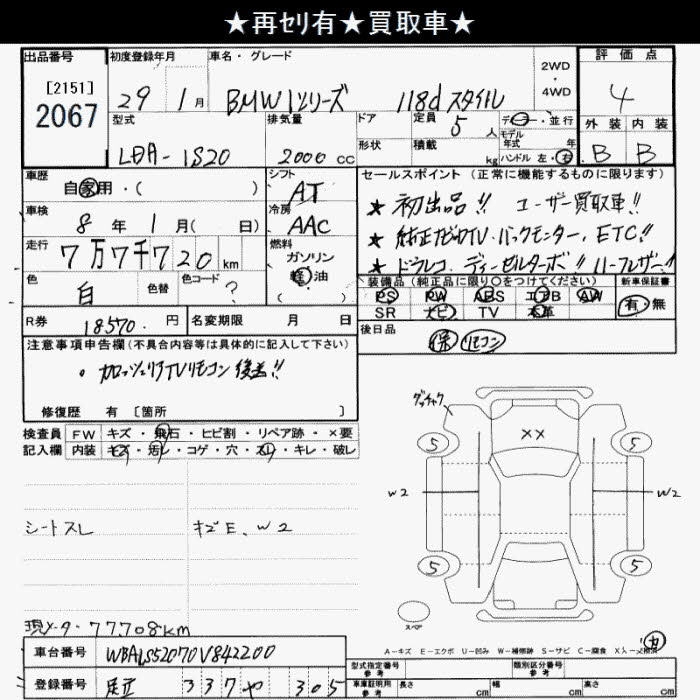 ★再セリ有★買取車★
出品番号 初度登録年月 車名・グレード 評価点
[2151]
2067
29 1月 BMW1シリーズ 118d スタイル
2WD
・
4WD
4
型式 排気量 ドア 定員 5人 ディーラー・並行
LDA-1S20 2000 cc 形状 積載 kg モデル年式 年
ハンドル 左・右
外装 内装
B B
車歴 自家用・( )
シフト
AT
車検 8年 1月( 日)
冷房
AAC
走行 7万7千720km
燃料
ガソリン
軽油
( )
色 白 色替 色コード ?
R券 18570.円 名変期限 月 日
セールスポイント(正常に機能するものに限ります)
★ 初出品!! ユーザー買取車!!
★ 純正ナビTV・バックモニター、ETC!!
★ ドラレコ・ディーゼルターボ!! ハーフレザー!!
装備品(純正品に限り○をつけてください) 新車保証書
PS PW ABS エアB AW
SR ナビ TV 本革
有・無
後日品
保 リモコン
注意事項申告欄(不具合内容等は具体的に記入して下さい)
・カロッツェリアTVリモコン後送!!
修復歴 有〔箇所 〕
検査員 FW キズ・飛石・ヒビ割・リペア跡・×要
記入欄 内装 キズ・汚レ・コゲ・穴・スリ・キレ・破レ
シートスレ
キズE、W2
ガッチャク
5 5
××
W2 W2
5 5
スペア
現メータ・77,708km
A-キズ E-エクボ U-凹み W-補修跡 S-サビ C-腐食 X-要交換
車台番号 WBA1S52070V842200
登録番号 足立 337 や 305
型式指定番号
参考
類別区分番号
参考
車庫証明用
参考
長さ cm 幅 cm 高さ cm